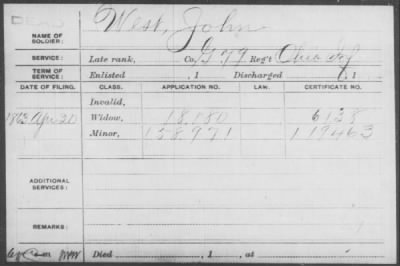 DEAD
NAME OF SOLDIER: West, John
SERVICE: Late rank, Co. G 79 Reg't Ohio Inf
TERM OF SERVICE: Enlisted , 1 Discharged , 1
DATE OF FILING. CLASS. APPLICATION NO. LAW. CERTIFICATE NO.
Invalid,
1863 Apr 20 Widow, 18,180 6128
Minor, 158,971 119463
ADDITIONAL SERVICES:
REMARKS:
Died , 1 , at